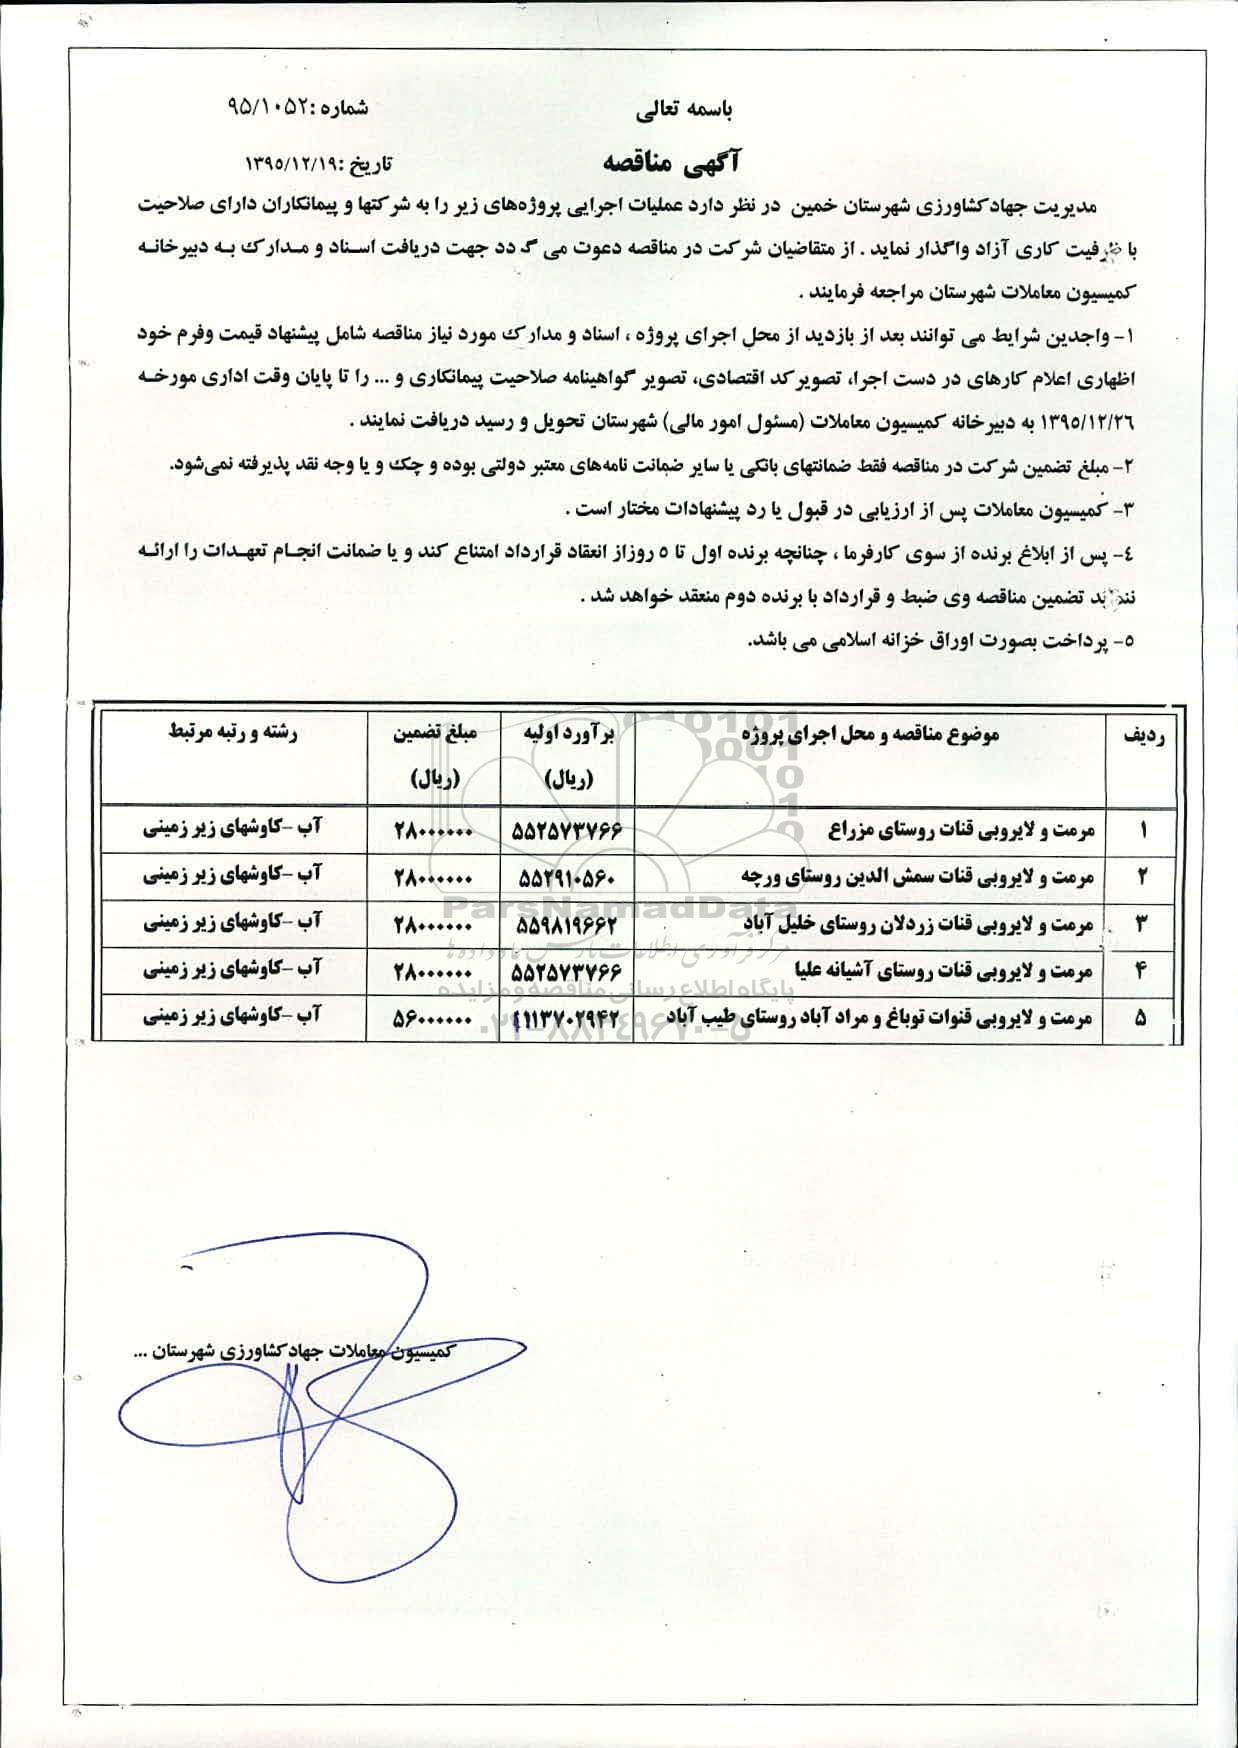 باسمه تعالی
شماره :۹۵/۱۰۵۲
آگهی مناقصه
تاریخ :۱۳۹۵/۱۲/۱۹
مدیریت جهادکشاورزی شهرستان خمین در نظر دارد عملیات اجرایی پروژه‌های زیر را به شرکتها و پیمانکاران دارای صلاحیت
با ظرفیت کاری آزاد واگذار نماید . از متقاضیان شرکت در مناقصه دعوت می گردد جهت دریافت اسناد و مدارک به دبیرخانه
کمیسیون معاملات شهرستان مراجعه فرمایند .
۱- واجدین شرایط می توانند بعد از بازدید از محل اجرای پروژه ، اسناد و مدارک مورد نیاز مناقصه شامل پیشنهاد قیمت وفرم خود
اظهاری اعلام کارهای در دست اجرا، تصویرکد اقتصادی، تصویر گواهینامه صلاحیت پیمانکاری و ... را تا پایان وقت اداری مورخه
۱۳۹۵/۱۲/۲۶ به دبیرخانه کمیسیون معاملات (مسئول امور مالی) شهرستان تحویل و رسید دریافت نمایند .
۲- مبلغ تضمین شرکت در مناقصه فقط ضمانتهای بانکی یا سایر ضمانت نامه‌های معتبر دولتی بوده و چک و یا وجه نقد پذیرفته نمی‌شود.
۳- کمیسیون معاملات پس از ارزیابی در قبول یا رد پیشنهادات مختار است .
٤- پس از ابلاغ برنده از سوی کارفرما ، چنانچه برنده اول تا ٥ روزاز انعقاد قرارداد امتناع کند و یا ضمانت انجام تعهدات را ارائه
ننماید تضمین مناقصه وی ضبط و قرارداد با برنده دوم منعقد خواهد شد .
٥- پرداخت بصورت اوراق خزانه اسلامی می باشد.
ردیف موضوع مناقصه و محل اجرای پروژه برآورد اولیه (ریال) مبلغ تضمین (ریال) رشته و رتبه مرتبط
۱ مرمت و لایروبی قنات روستای مزراع ۵۵۲۵۷۳۷۶۶ ۲۸۰۰۰۰۰۰ آب -کاوشهای زیر زمینی
۲ مرمت و لایروبی قنات سمش الدین روستای ورچه ۵۵۲۹۱۰۵۶۰ ۲۸۰۰۰۰۰۰ آب -کاوشهای زیر زمینی
۳ مرمت و لایروبی قنات زردلان روستای خلیل آباد ۵۵۹۸۱۹۶۶۲ ۲۸۰۰۰۰۰۰ آب -کاوشهای زیر زمینی
۴ مرمت و لایروبی قنات روستای آشیانه علیا ۵۵۲۵۷۳۷۶۶ ۲۸۰۰۰۰۰۰ آب -کاوشهای زیر زمینی
۵ مرمت و لایروبی قنوات توباغ و مراد آباد روستای طیب آباد ۱۱۱۳۷۰۲۹۴۲ ۵۶۰۰۰۰۰۰ آب -کاوشهای زیر زمینی
ParsNamadData
پایگاه اطلاع رسانی مناقصه و مزایده
۰۲۱-۸۸۳۴۹۶۷۰-۵
کمیسیون معاملات جهادکشاورزی شهرستان ...